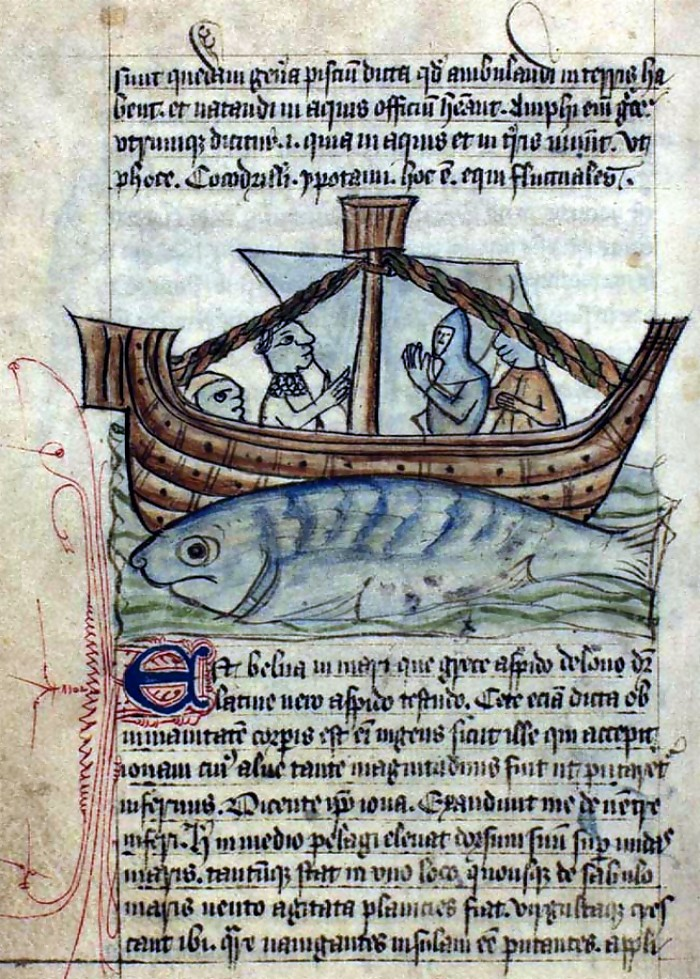 sunt quedam gen̄a pisciū dicta qd̓ ambulandi in terris ha
bent. et natandi in aquis officiū hēant. Amphi em̄ grece
utrumqꝫ dicitur .i. quia in aquis et in t̓ris uiuūt. Vt
phoce. Cocodrilli. ypotami. hoc ē. equi fluctuales.
Est belua in mari que grece aspido delone dr̄
latine uero aspido testudo. Cete eciā dicta ob
inmanitatē corp̄is est eī ingens sicut ille qui accepit
ionam cui᷒ aluus tante magnitudinis fuit ut putaret᷒
infernus. Dicente ip̄o iona. Exaudiuit me de uentre
inferi. H̓ in medio pelagi eleuat dorsum suū sup̄ undas
maris. tantūqꝫ stat in uno loco quousqꝫ de sabulo
maris uento agitata planicies fiat. Virgultaqꝫ cres
cant ibi. qr̄e nauigantes insulam eē putantes. appli